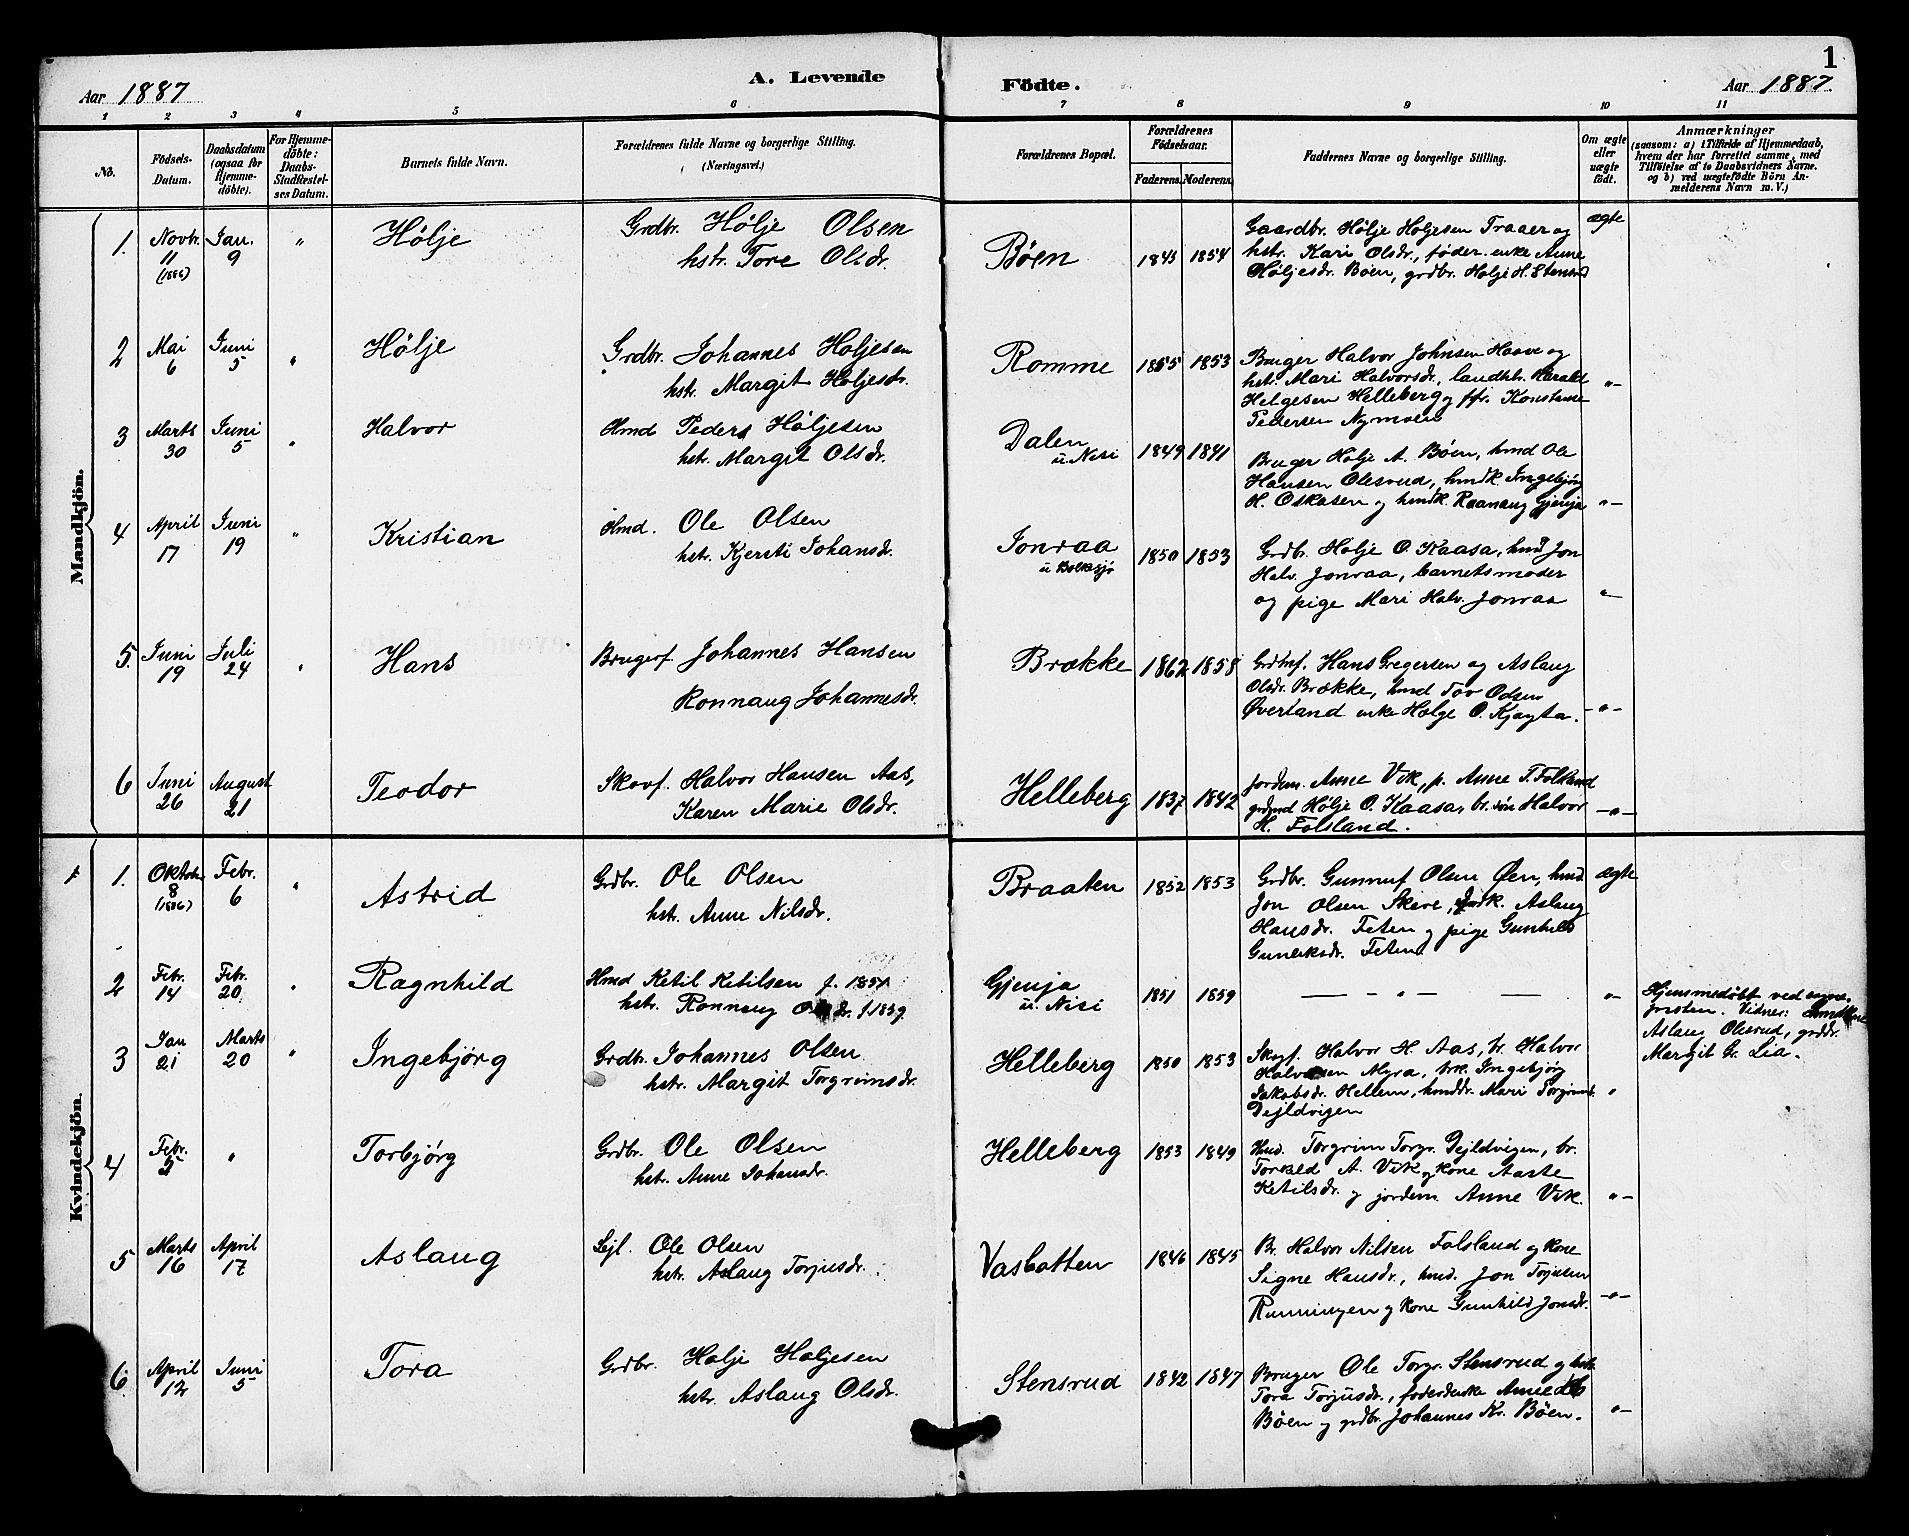 Aar 1887
A. Levende
Födte.
Aar 1887.
1
1 2 3 4 5 6 7 8 9 10 11
No.
Födsels-Datum.
Daabsdatum (ogsaa for Hjemme-döbte).
For Hjemme-döbte: Daabs-Stadfæstel-ses Datum.
Barnets fulde Navn.
Forældrenes fulde Navne og borgerlige Stilling. (Næringsvei.)
Forældrenes Bopæl.
Forældrenes Födselsaar.
Faderens. Moderens.
Faddernes Navne og borgerlige Stilling.
Om ægte eller uægte födt.
Anmærkninger
(saasom: a) i Tilfælde af Hjemmedaab,
hvem der har forrettet samme, med
Tilföielse af to Daabsvidners Navne.
og b) ved uægtefödte Börn An-
melderens Navn m. V.)
Mandkjön.
1. Novbr. 11 (1886) Jan. 9 " Hølje
Grdbr. Hølje Olsen
hstr. Tore Olsdr.
Bøen 1845 1854
Gaardbr. Hølje Høljesen Traaer og
hstr. Kari Olsdr., føder. enke Anne
Høljesdr. Bøen, grdbr. Holje H. Stensrud
ægte
2 Mai 6 Juni 5 " Hølje
Grdbr. Johannes Holjesen
hstr. Margit Holjesdr.
Romme 1855 1853
Bruger Halvor Johnsen Haave og
hstr. Mari Halvorsdr., landhbr. Harald
Helgesen Helleberg og ffr. Konstanse
Pedersen Nymoen
"
3 Marts 30 Juni 5 " Halvor
Hmd Peders Høljesen
hstr. Margit Olsdr.
Dalen u. Nisi 1849 1841
Bruger Holje A. Bøen, hmd Ole
Hansen Olesrud, hmdk. Ingebjørg
H. Oskasen og hmdk. Raanaug Gjenja
"
4 April 17 Juni 19 " Kristian
Hmd. Ole Olsen
hstr. Kjersti Johansdr.
Jonraa u Bolkesjø 1850 1853
Grdbr. Holje O. Kaasa, hmd Jon
Halv. Jonraa, barnets moder
og pige Mari Halv. Jonraa
"
5. Juni 19 Juli 24 " Hans
Brugerf. Johannes Hansen
Ronnaug Johannesdr.
Brække 1862 1858
Grdmf. Hans Gregersen og Aslaug
Olsdr. Brække, hmd Tov Odsen
Øverland enke Holge O. Kjøyta.
-"-
6 Juni 26 August 21 Teodor
Skovf. Halvor Hansen Aas,
Karen Marie Olsdr.
Helleberg 1837 1842
Jordem. Anne Vik, p. Anne T. Folsland
grdmd Hølje O. Kaasa, br. søn Halvor
H. Folsland.
-"-
Kvindekjön.
1. Oktobr. 8 (1886) Febr. 6 " Astrid
Grdbr. Ole Olsen
hstr. Anne Nilsdr.
Braaten 1852 1853
Grdbr. Gunnuf Olsen Øen, hmd.
Jon Olsen Skeie, Aslaug
Hansdr. Feten og pige Gunhild
Gunleiksdr. Feten
ægte
2 Febr. 14 Febr. 20 " Ragnhild
Hmd Ketil Ketilsen f. 1851
hstr. Ronnaug f 1859.
Gjenja u. Nisi 1851 1859
— — " — —
"
Hjemmedøbt ved sogne-
præsten. Vidner:
Aslaug Olesrud, grddr.
Margit G. Lia.
3 Jan 21 Marts 20 " Ingebjørg
Grdbr. Johannes Olsen
hstr. Margit Torgrimsdr.
Helleberg 1850 1853
Skogf. Halvor H. Aas, br. Halvor
Halvorsen Myra, brk. Ingebjørg
Jakobsdr. Hellem, hmddr. Mari Torgrimsd.
Dejldvigen
"
4 Febr. 5 " Torbjørg
Grdbr. Ole Olsen
hstr. Anne Johansdr.
Helleberg 1853 1849
Hmd. Torgrim Torgr. Dejldvigen, br.
Torkild A. Vik og kone Aaste
Ketilsdr. og jordem. Anne Vik.
"
5 Marts 16 April 17 Aslaug
Lejl. Ole Olsen
hstr. Aslaug Torjusdr.
Vasbotten 1846 1845
Br. Halvor Nilsen Folsland og kone
Signe Hansdr., hmd. Jon Torjusen
Runningen og kone Gunhild Jonsdr.
-"-
6. April 12 Juni 5 Tora
Grdbr. Holje Holjesen
hstr. Aslaug Olsdr.
Stensrud 1842 1847
Bruger Ole Torgr. Stensrud og hstr
Tora Torjusdr., føderaadenke Anne
Bøen og grdbr. Johannes Kr. Bøen.
"